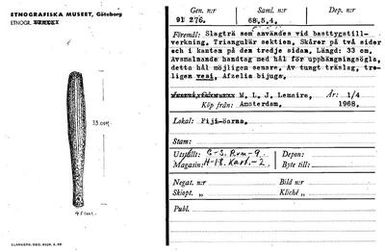 ETNOGRAFISKA MUSEET, Göteborg
33 cm.
Gen. n:r
91 276.
Saml. n:r
68.5.4.
Dep. n:r
Föremål: Slagträ som användes vid basttygstill-
verkning. Triangulär sektion. Skåror på två sidor
och i kanten på den tredje sidan. Längd: 33 cm.
Avsmalnande handtag med hål för upphängningsögla,
detta hål möjligen senare. Av tungt träslag, tro-
ligen vesi, Afzelia bijuga.
M. L. J. Lemaire,
År: 1/4
Köp från: Amsterdam,
1968.
Lokal: Fiji-öarna.
Stam:
Utställt:
Magasin:
Depon:
Byte till:
Negat. n:r
Skiopt. „
Bild n:r
Kliché „
Publ.